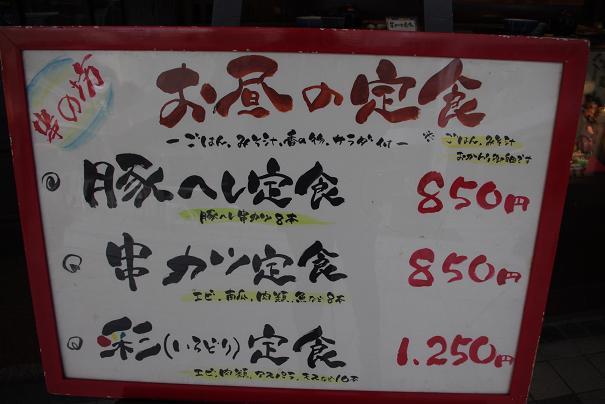 串の坊
お昼の定食
ーごはん、みそ汁、香の物、サラダ付ー
※ ごはん、みそ汁
おかわり自由です
豚へレ定食 850円
豚ヘレ串カツ 8本
串カツ定食 850円
エビ、南瓜、肉類、魚など8本
彩(いろどり)定食 1.250円
エビ、肉類、アスパラ、キスなど10本